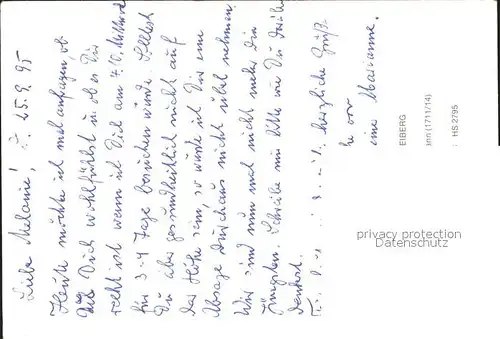 Liebe Melanie! 25.9.95
Heute möchte ich mal anfragen ob
Du Dich wohlfühlst u. ob es Dir
recht ist wenn ich Dich am 4.10. Mittwoch
für 3-4 Tage besuchen würde. Solltest
Du aber gesundheitlich nicht auf
der Höhe sein, so würde ich Dir eine
Absage durchaus nicht übel nehmen.
Wir sind nun mal nicht mehr die
Jüngsten. Schreibe mir bitte wie Du darüber
denkst.
herzliche Grüße
eine Marianne.
EIBERG
ann (1711/14)
HS 2795
privacy protection
Datenschutz